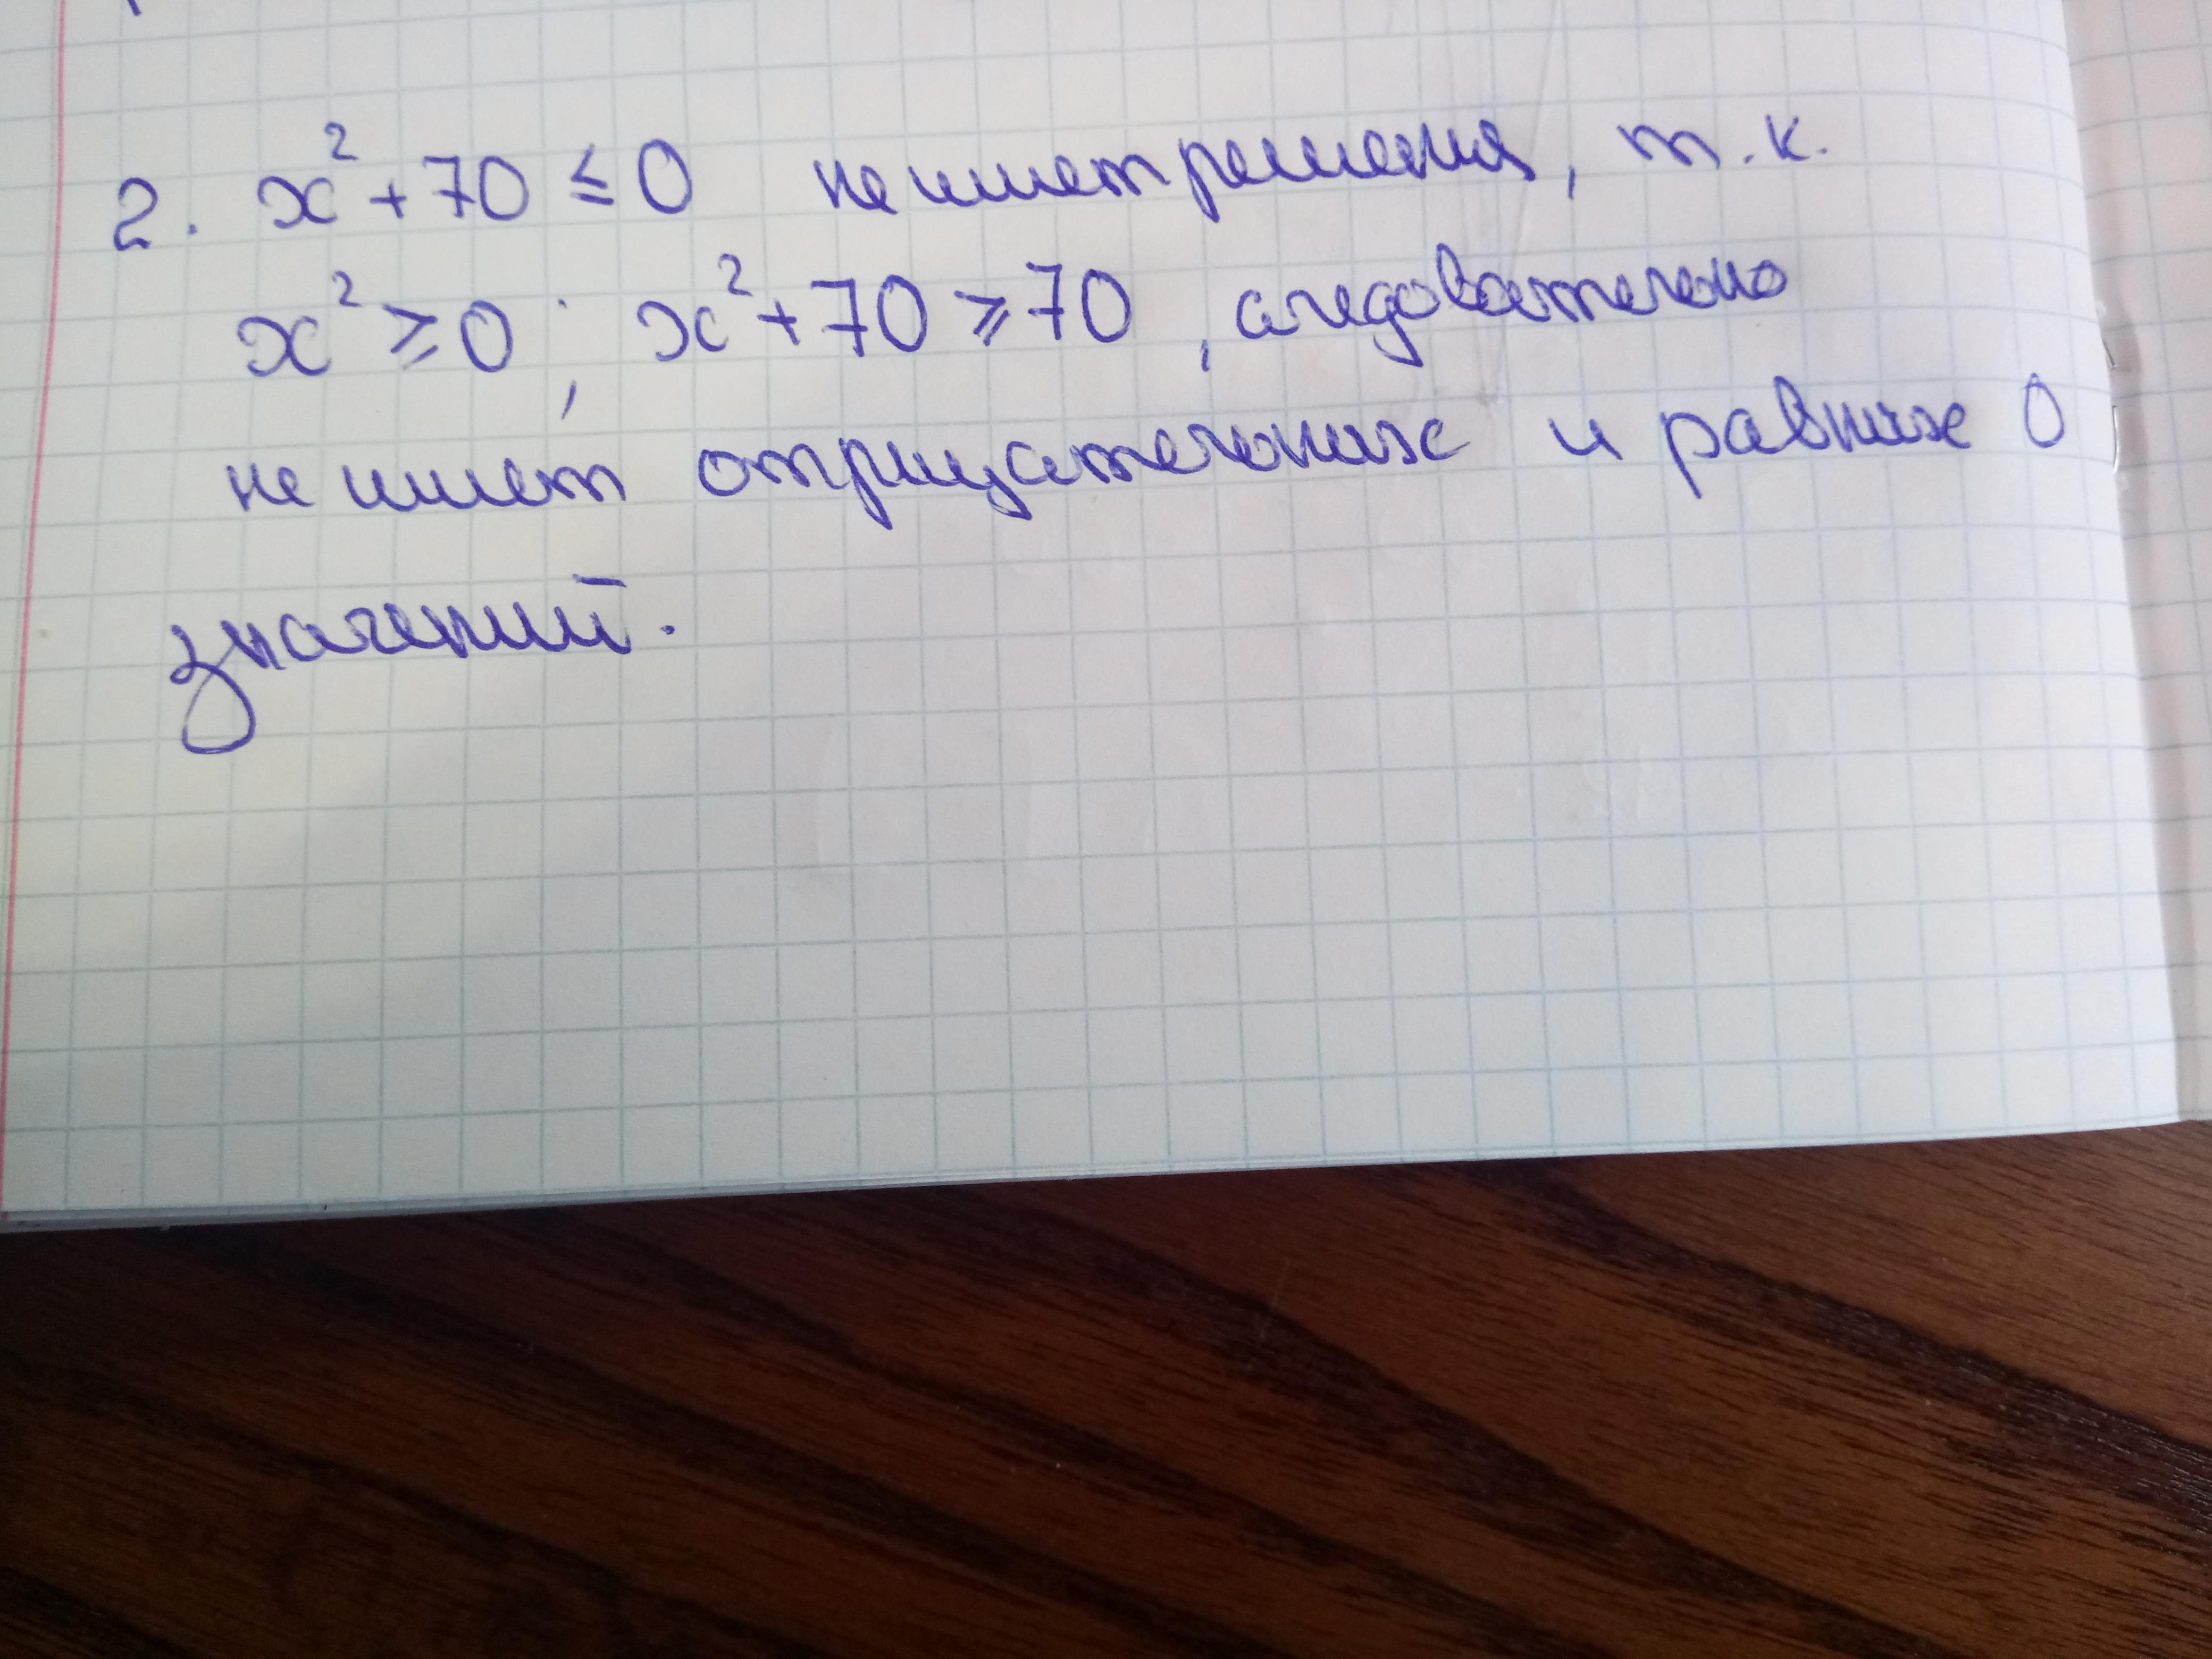 2. x² + 70 ≤ 0 не имеет решения, т.к.
x² ≥ 0 ; x² + 70 ⩾ 70 , следовательно
не имеет отрицательных и равных 0
значений.